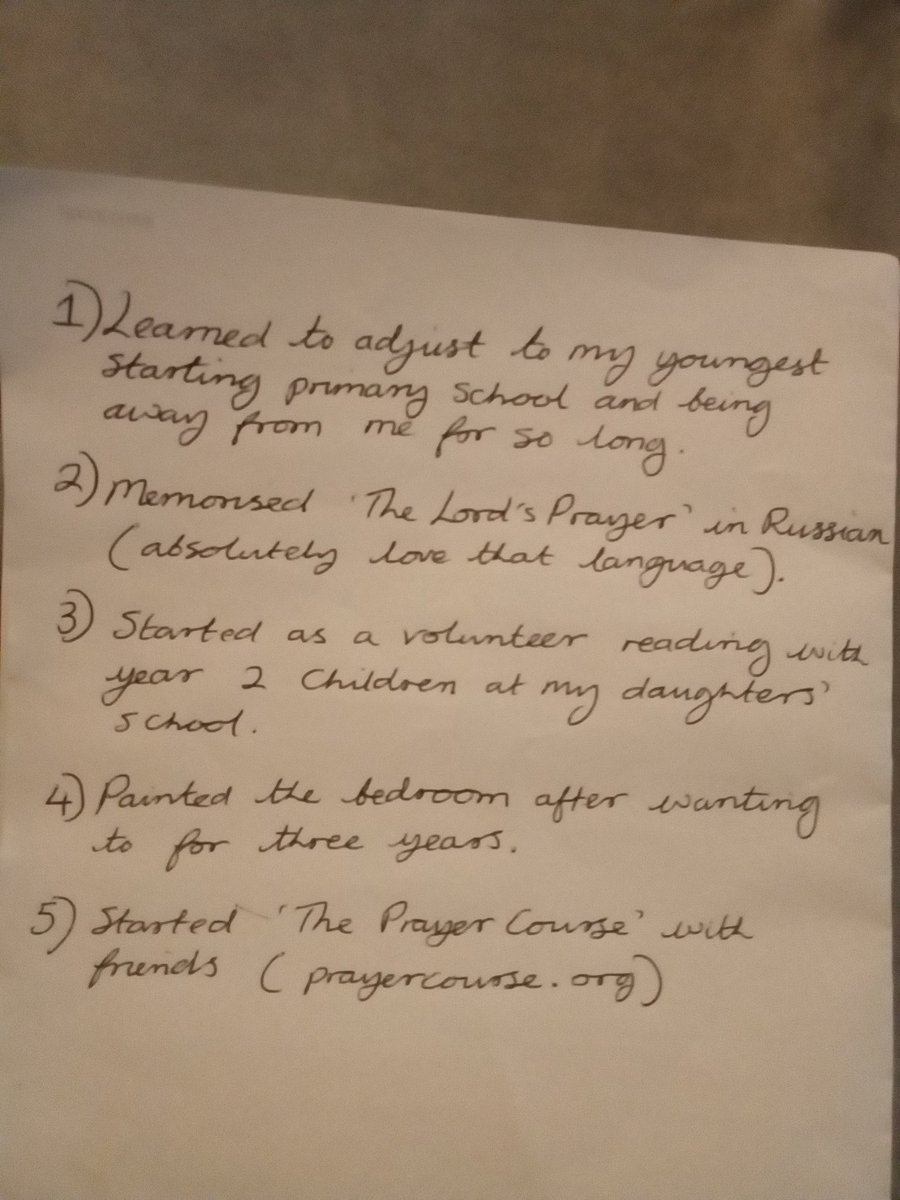 1) Learned to adjust to my youngest
starting primary school and being
away from me for so long.
2) Memorised 'The Lord's Prayer' in Russian
(absolutely love that language).
3) Started as a volunteer reading with
year 2 children at my daughters'
school.
4) Painted the bedroom after wanting
to for three years.
5) Started 'The Prayer Course' with
friends (prayercourse.org)